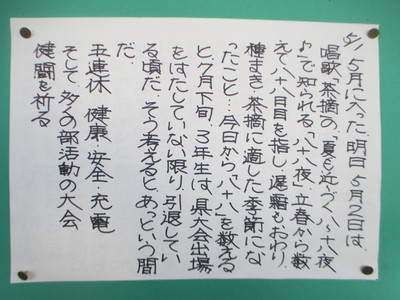 5/1 5月に入った。明日5月2日は、
唱歌「茶摘の、夏も近づく八十八夜
♪で知られる「八十八夜」立春から数
えて八十八日目を指し、遅霜もおわり、
種まき・茶摘に適した季節にな
ったこと…今日から「八十八」を数える
と7月下旬、3年生は、県大会出場
をはたしていない限り、引退してい
る頃だ。そう考えると、あっという間
だ。
五連休 健康・安全・充電
そして、多くの部活動の大会
健闘を祈る